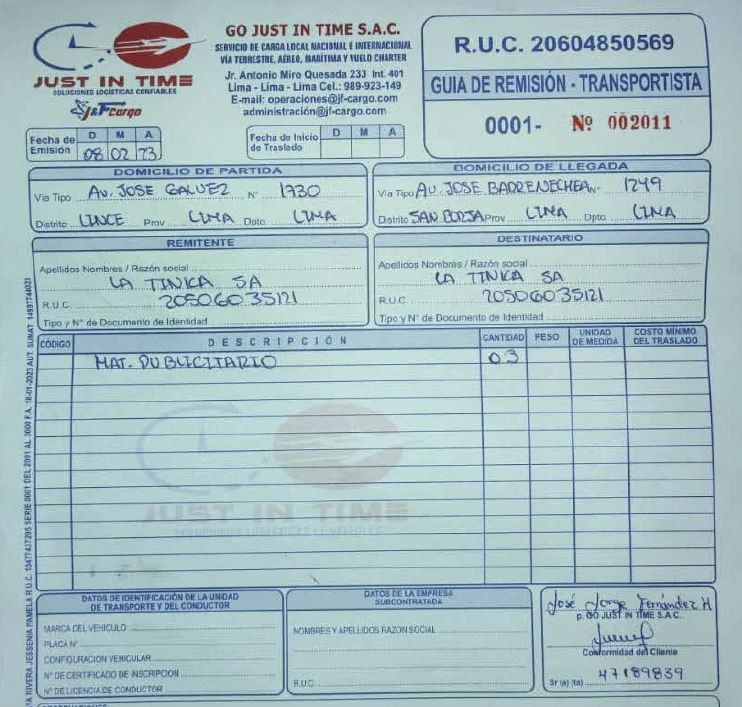 JUST IN TIME
SOLUCIONES LOGÍSTICAS CONFIABLES
J&F Cargo
GO JUST IN TIME S.A.C.
SERVICIO DE CARGA LOCAL NACIONAL E INTERNACIONAL
VÍA TERRESTRE, AÉREO, MARÍTIMA Y VUELO CHARTER
Jr. Antonio Miro Quesada 233 Int. 401
Lima - Lima - Lima Cel.: 989-923-149
E-mail: operaciones@jf-cargo.com
administración@jf-cargo.com
R.U.C. 20604850569
GUIA DE REMISIÓN - TRANSPORTISTA
0001- Nº 002011
Fecha de Emisión D M A
08 02 23
Fecha de Inicio de Traslado D M A
DOMICILIO DE PARTIDA
Via Tipo AV. JOSE GALVEZ Nº 1730
Distrito LINCE Prov LIMA Dpto. LIMA
DOMICILIO DE LLEGADA
Via Tipo AV. JOSE BARRENECHEA Nº 1249
Distrito SAN BORJA Prov LIMA Dpto. LIMA
REMITENTE
Apellidos Nombres / Razón social
LA TINKA SA
R.U.C. 20506035121
Tipo y Nº de Documento de Identidad
DESTINATARIO
Apellidos Nombres / Razón social
LA TINKA SA
R.U.C. 20506035121
Tipo y Nº de Documento de Identidad
CÓDIGO DESCRIPCIÓN CANTIDAD PESO UNIDAD DE MEDIDA COSTO MÍNIMO DEL TRASLADO
MAT. PUBLICITARIO 03
JUST IN TIME
SOLUCIONES LOGÍSTICAS CONFIABLES
DATOS DE IDENTIFICACIÓN DE LA UNIDAD
DE TRANSPORTE Y DEL CONDUCTOR
MARCA DEL VEHICULO
PLACA Nº
CONFIGURACIÓN VEHICULAR
Nº DE CERTIFICADO DE INSCRIPCION
Nº DE LICENCIA DE CONDUCTOR
DATOS DE LA EMPRESA
SUBCONTRATADA
NOMBRES Y APELLIDOS RAZON SOCIAL
R.U.C.
José Jorge Fernández H
p. GO JUST IN TIME S.A.C.
Conformidad del Cliente
Sr (a) (ta) 47189839
RIVERA JESSENIA PAMELA R.U.C. 10477437295 SERIE 0001 DEL 2001 AL 3000 F.A. 18-01-2023 AUT. SUNAT